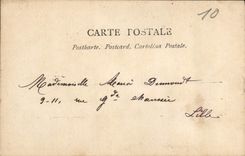 10
CARTE POSTALE
Postkarte. Postcard. Cartolina Postale.
Mademoiselle Maria Dumoudt
9-11, rue Gde Chaussée
Lille